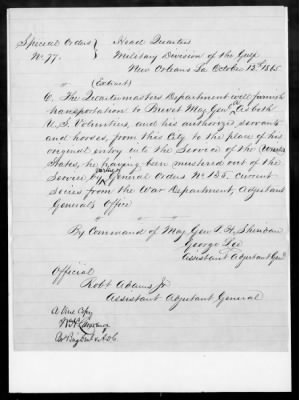 Special Orders } Head Quarters
No 77. } Military Division of the Gulf
New Orleans La October 13th 1865.
(Extract)
6. The Quartermasters Department will furnish
transportation to Brevet Maj. Gen'l Asboth
U.S. Volunteers, and his authorized servants
and horses, from this City to the place of his
original entry into the Service of the United
States, he having been mustered out of the
Service by General Orders No 135. current
series from the War Department, Adjutant
Generals Office
By Command of Maj. Gen P. H. Sheridan
George Lee
Assistant Adjutant Gen'l
Official
Robt Adams Jr
Assistant Adjutant General
A true Copy